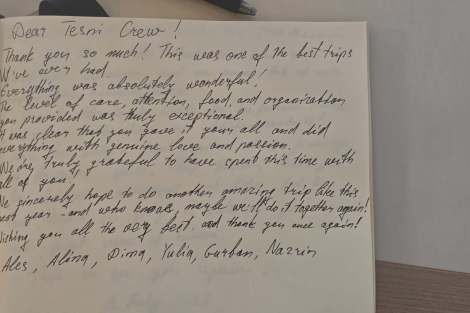 Dear Tesni Crew!
Thank you so much! This was one of the best trips
We've ever had.
Everything was absolutely wonderful!
The level of care, attention, food, and organization
you provided was truly exceptional.
It was clear that you gave it your all and did
everything with genuine love and passion.
We are truly grateful to have spent this time with
all of you!
We sincerely hope to do another amazing trip like this
next year - and who knows, maybe we'll do it together again!
Wishing you all the very best and thank you once again!
Ales, Alina, Dima, Yulia, Gurban, Nazrin